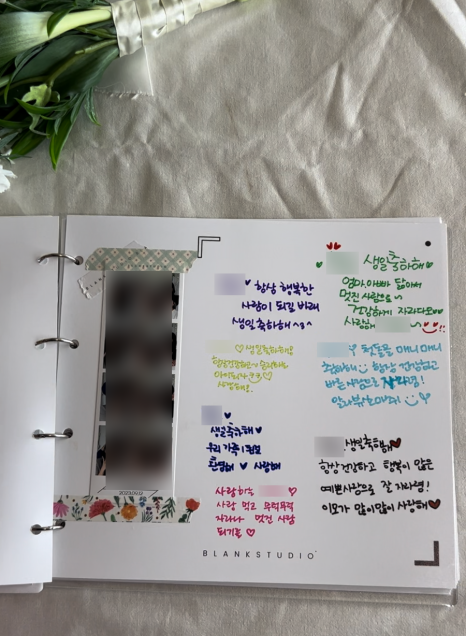 항상 행복한
사람이 되길 바래
생일 축하해 ^3^
♡생일축하해!!
사랑해!
생일축하해
우리 가족이 된걸
환영해 ♥ 사랑해
사랑하는
사랑 먹고 무럭무럭
자라나 멋진 사람
되기를 ♡
생일축하해♥
엄마, 아빠 닮아서
멋진 사람으로
건강하게 자라다오
사랑해
첫돌을 매니매니
축하해 항상 건강하고
바른 자라렴!
생일축하해♥
항상 건강하고 행복이 많은
예쁜사람으로 잘 자라렴!
이모가 많이많이 사랑해♥
BLANKSTUDIO